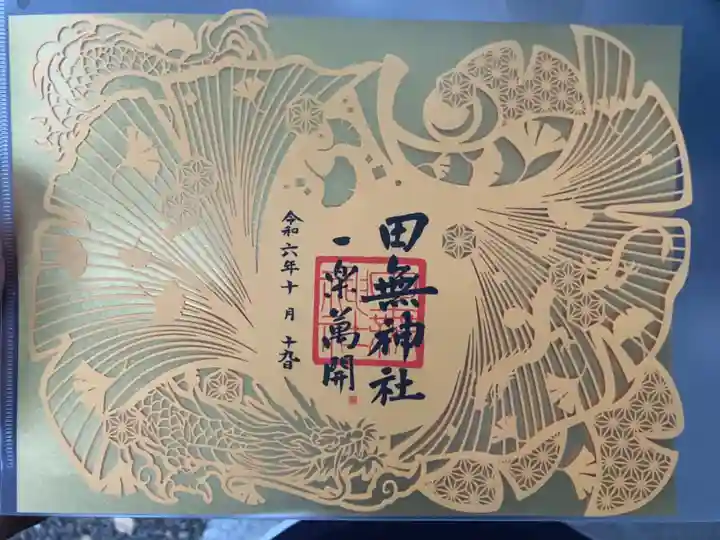 田無神社
一楽萬開
令和六年十月十九日